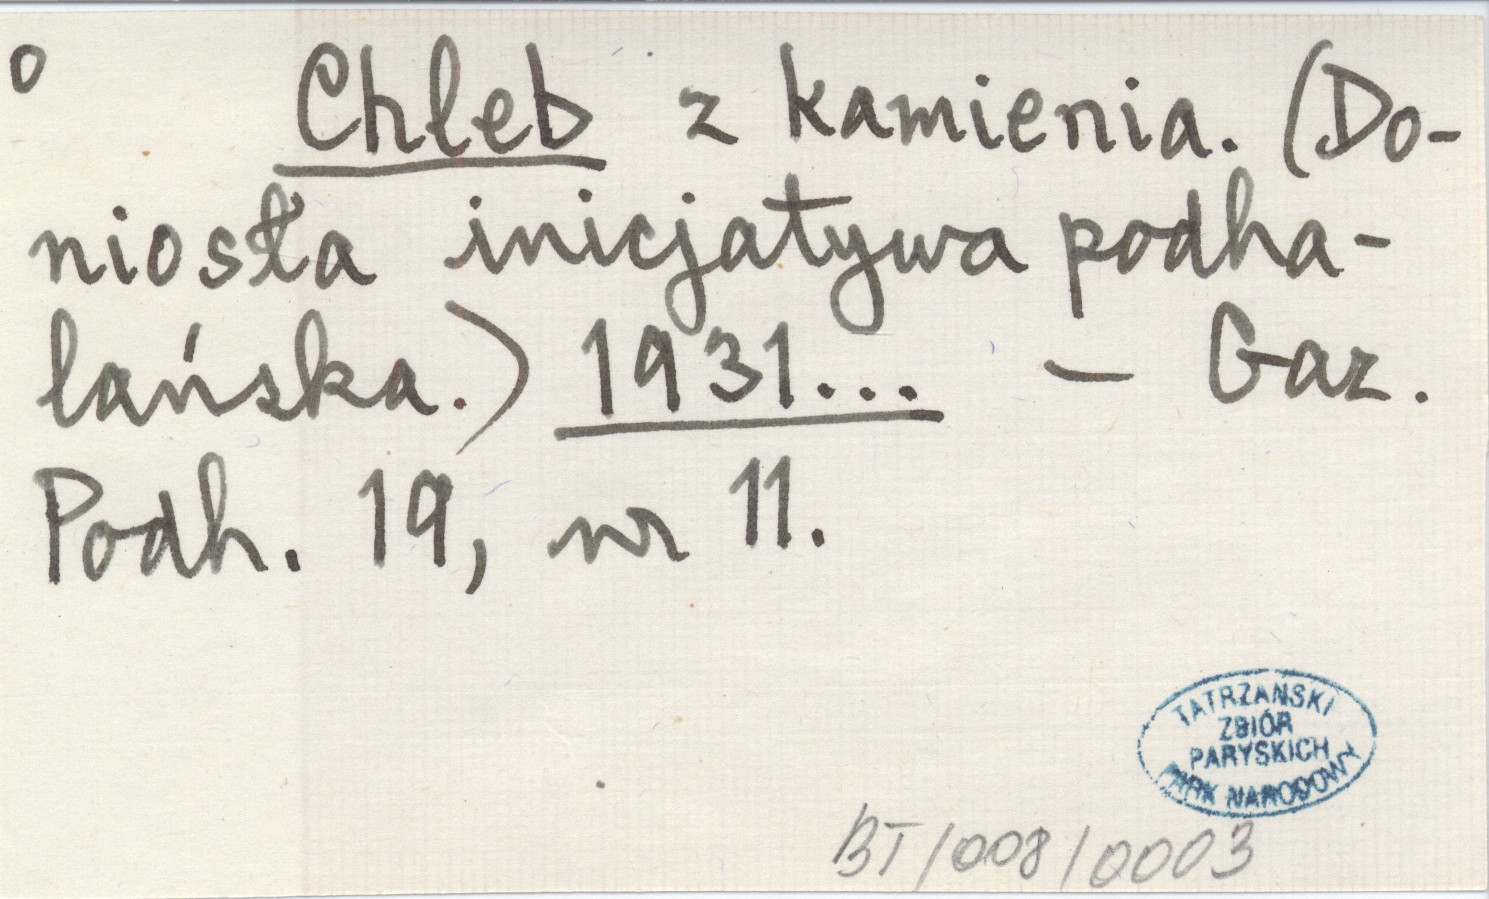 o Chleb z kamienia. (Do-
niosła inicjatywa podha-
lańska.) 1931... – Gaz.
Podh. 19, nr 11.
TATRZAŃSKI
ZBIÓR
PARYSKICH
PARK NARODOWY
BT/008/0003